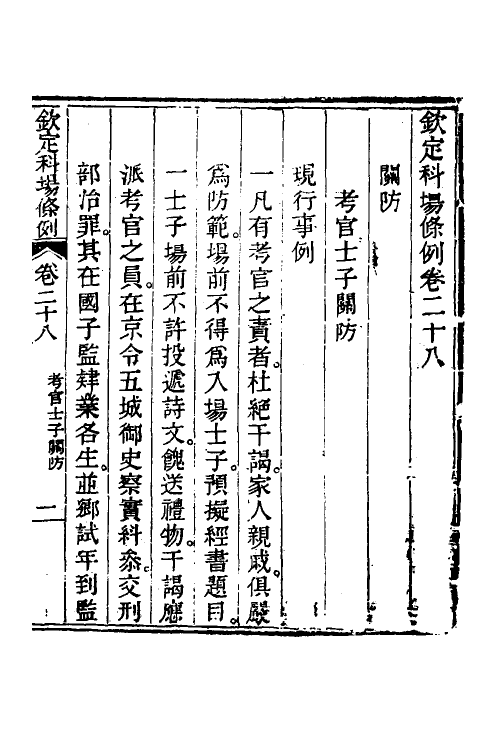 欽定科場條例卷二十八
關防
考官士子關防
現行事例
一凡有考官之責者。杜絕干謁。家人親戚。俱嚴
爲防範。場前不得爲入場士子。預擬經書題目。
一士子場前不許投遞詩文。餽送禮物。干謁應
派考官之員。在京令五城御史察實科參。交刑
部治罪。其在國子監肄業各生。並鄉試年到監
欽定科場條例
卷二十八
考官士子關防
一